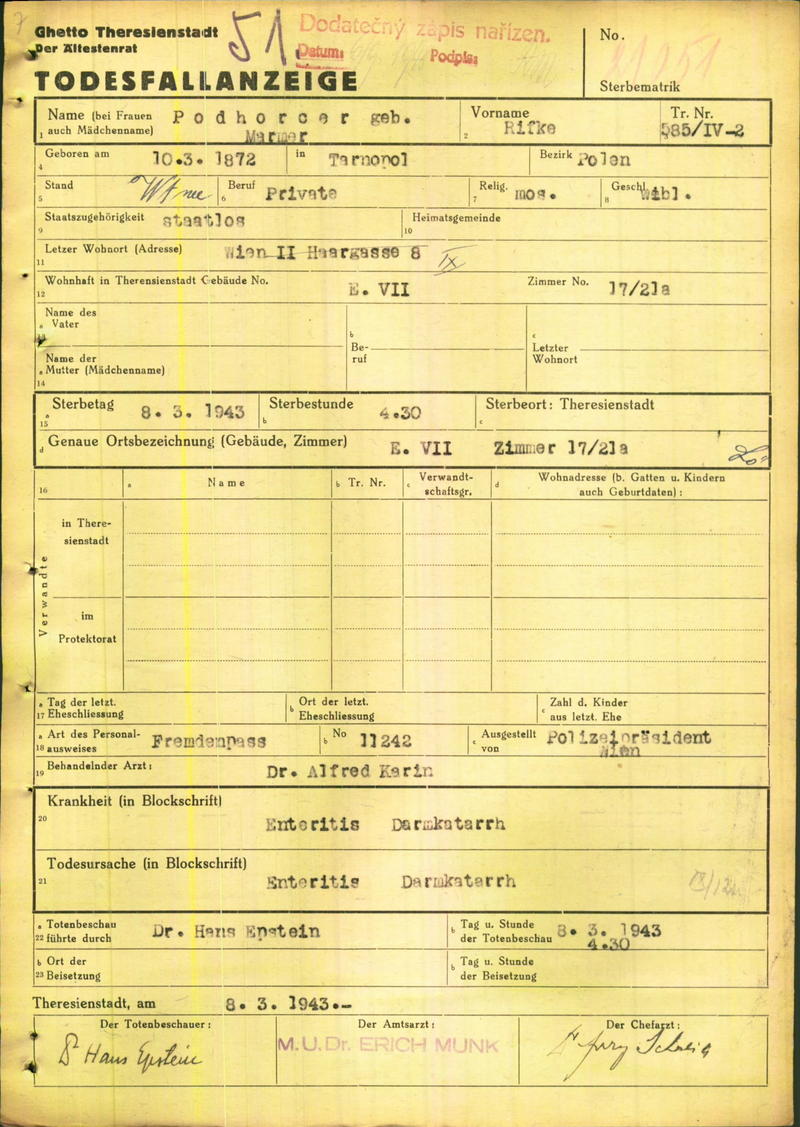 Ghetto Theresienstadt
Der Ältestenrat
51
Dodatečný zápis nařízen.
Datum:
Podpis:
No.
TODESFALLANZEIGE
Sterbematrik
Name (bei Frauen auch Mädchenname) Podhorcer geb.
Marmer
1
Vorname Rifke
2
Tr. Nr.
985/IV-2
Geboren am 10.3. 1872 in Tarnopol Bezirk Polen
4
Stand Witwe Beruf Private Relig. mos. Geschl. Wibl.
5 6 7 8
Staatszugehörigkeit staatlos Heimatsgemeinde
9 10
Letzer Wohnort (Adresse) Wien II Haargasse 8 IX
11
Wohnhaft in Theresienstadt Gebäude No. E. VII Zimmer No. 17/21a
12
Name des
a Vater
b
Be-
ruf
c
Letzter
Wohnort
Name der
a Mutter (Mädchenname)
14
Sterbetag 8. 3. 1943 Sterbestunde 4.30 Sterbeort: Theresienstadt
a 15 b c
d Genaue Ortsbezeichnung (Gebäude, Zimmer) E. VII Zimmer 17/21a
16 a Name b Tr. Nr. c Verwandt-
schaftsgr. d Wohnadresse (b. Gatten u. Kindern
auch Geburtdaten) :
Verwandte
in There-
sienstadt
im
Protektorat
a Tag der letzt.
17 Eheschliessung
b Ort der letzt.
Eheschliessung
c Zahl d. Kinder
aus letzt. Ehe
a Art des Personal-
18 ausweises
Fremdenpass
b No 11242
c Ausgestellt
von
Polizeipräsident
Wien
Behandelnder Arzt: Dr. Alfred Karin
19
Krankheit (in Blockschrift)
20
Enteritis Darmkatarrh
Todesursache (in Blockschrift)
21
Enteritis Darmkatarrh
a Totenbeschau
22 führte durch
Dr. Hans Epstein
b Tag u. Stunde
der Totenbeschau
8. 3. 1943
4.30
b Ort der
23 Beisetzung
b Tag u. Stunde
der Beisetzung
Theresienstadt, am 8. 3. 1943.-
Der Totenbeschauer: Der Amtsarzt: Der Chefarzt:
Dr Hans Epstein
M.U.Dr. ERICH MUNK